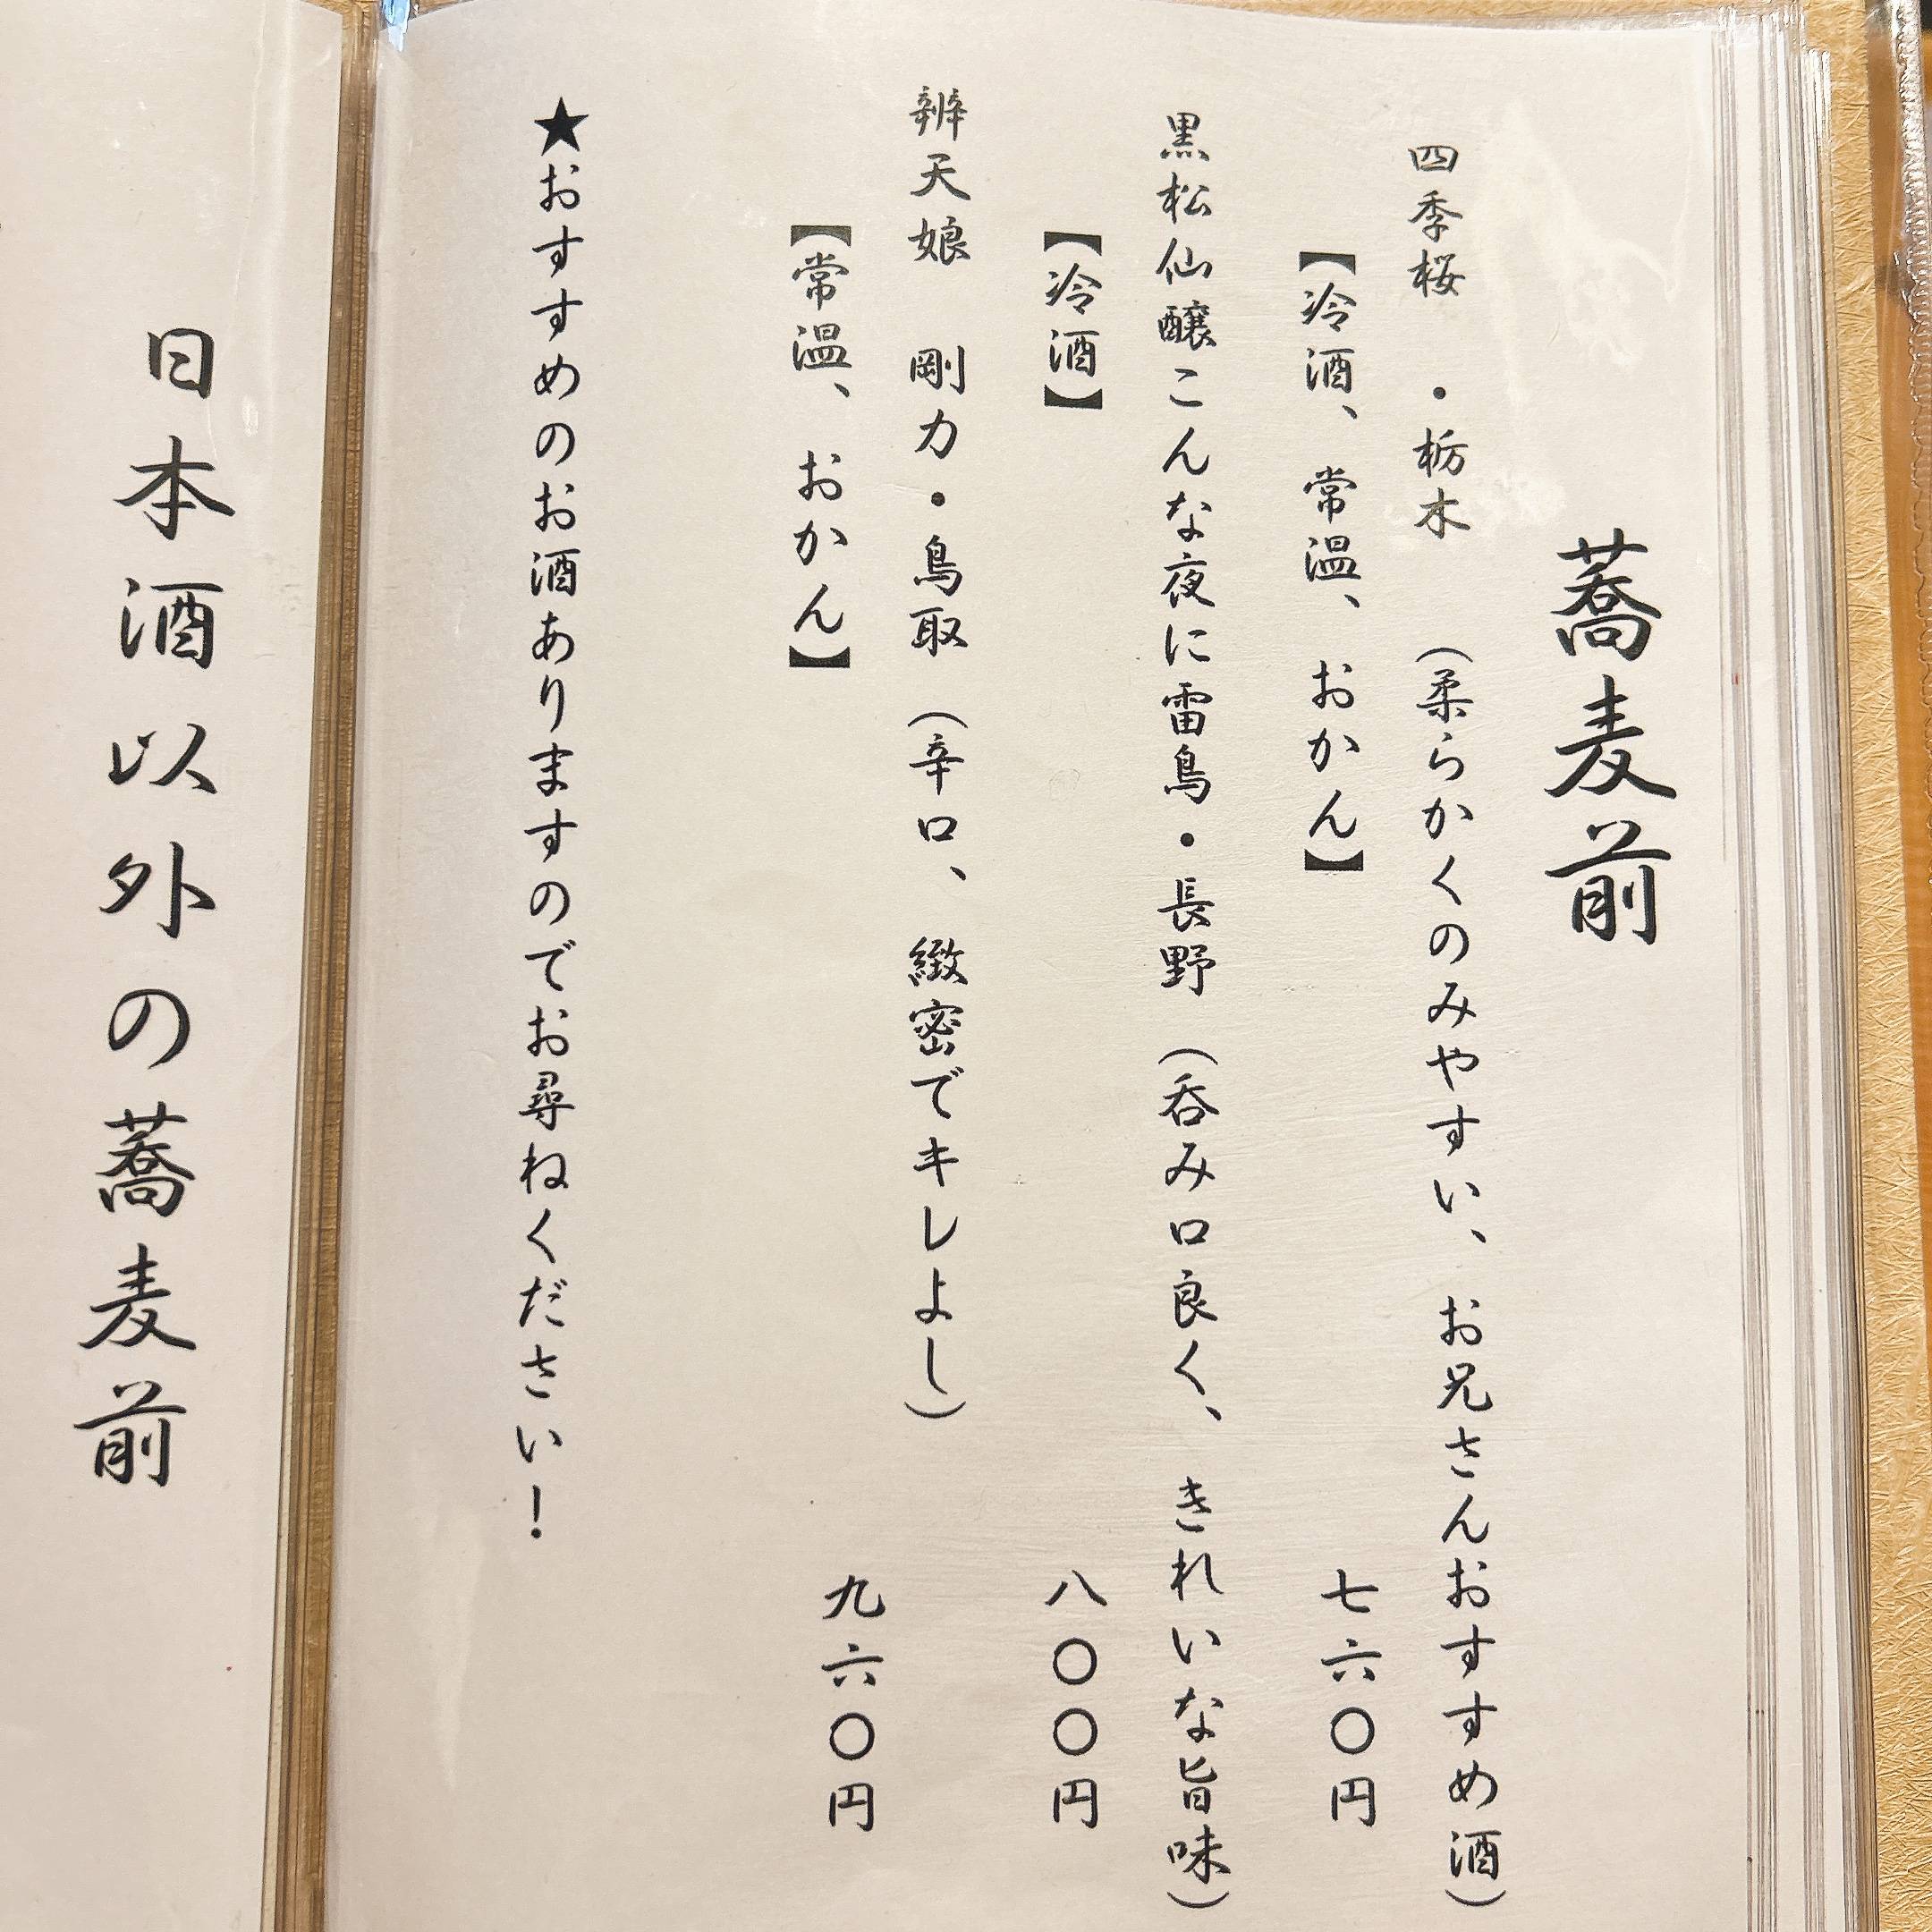 蕎麦前
四季桜 ・栃木 （柔らかくのみやすい、お兄さんおすすめ酒）
【冷酒、常温、おかん】 七六〇円
黒松仙醸こんな夜に雷鳥・長野（呑み口良く、きれいな旨味）
【冷酒】 八〇〇円
辨天娘 剛力・鳥取（辛口、緻密でキレよし）
【常温、おかん】 九六〇円
★おすすめのお酒ありますのでお尋ねください！
日本酒以外の蕎麦前